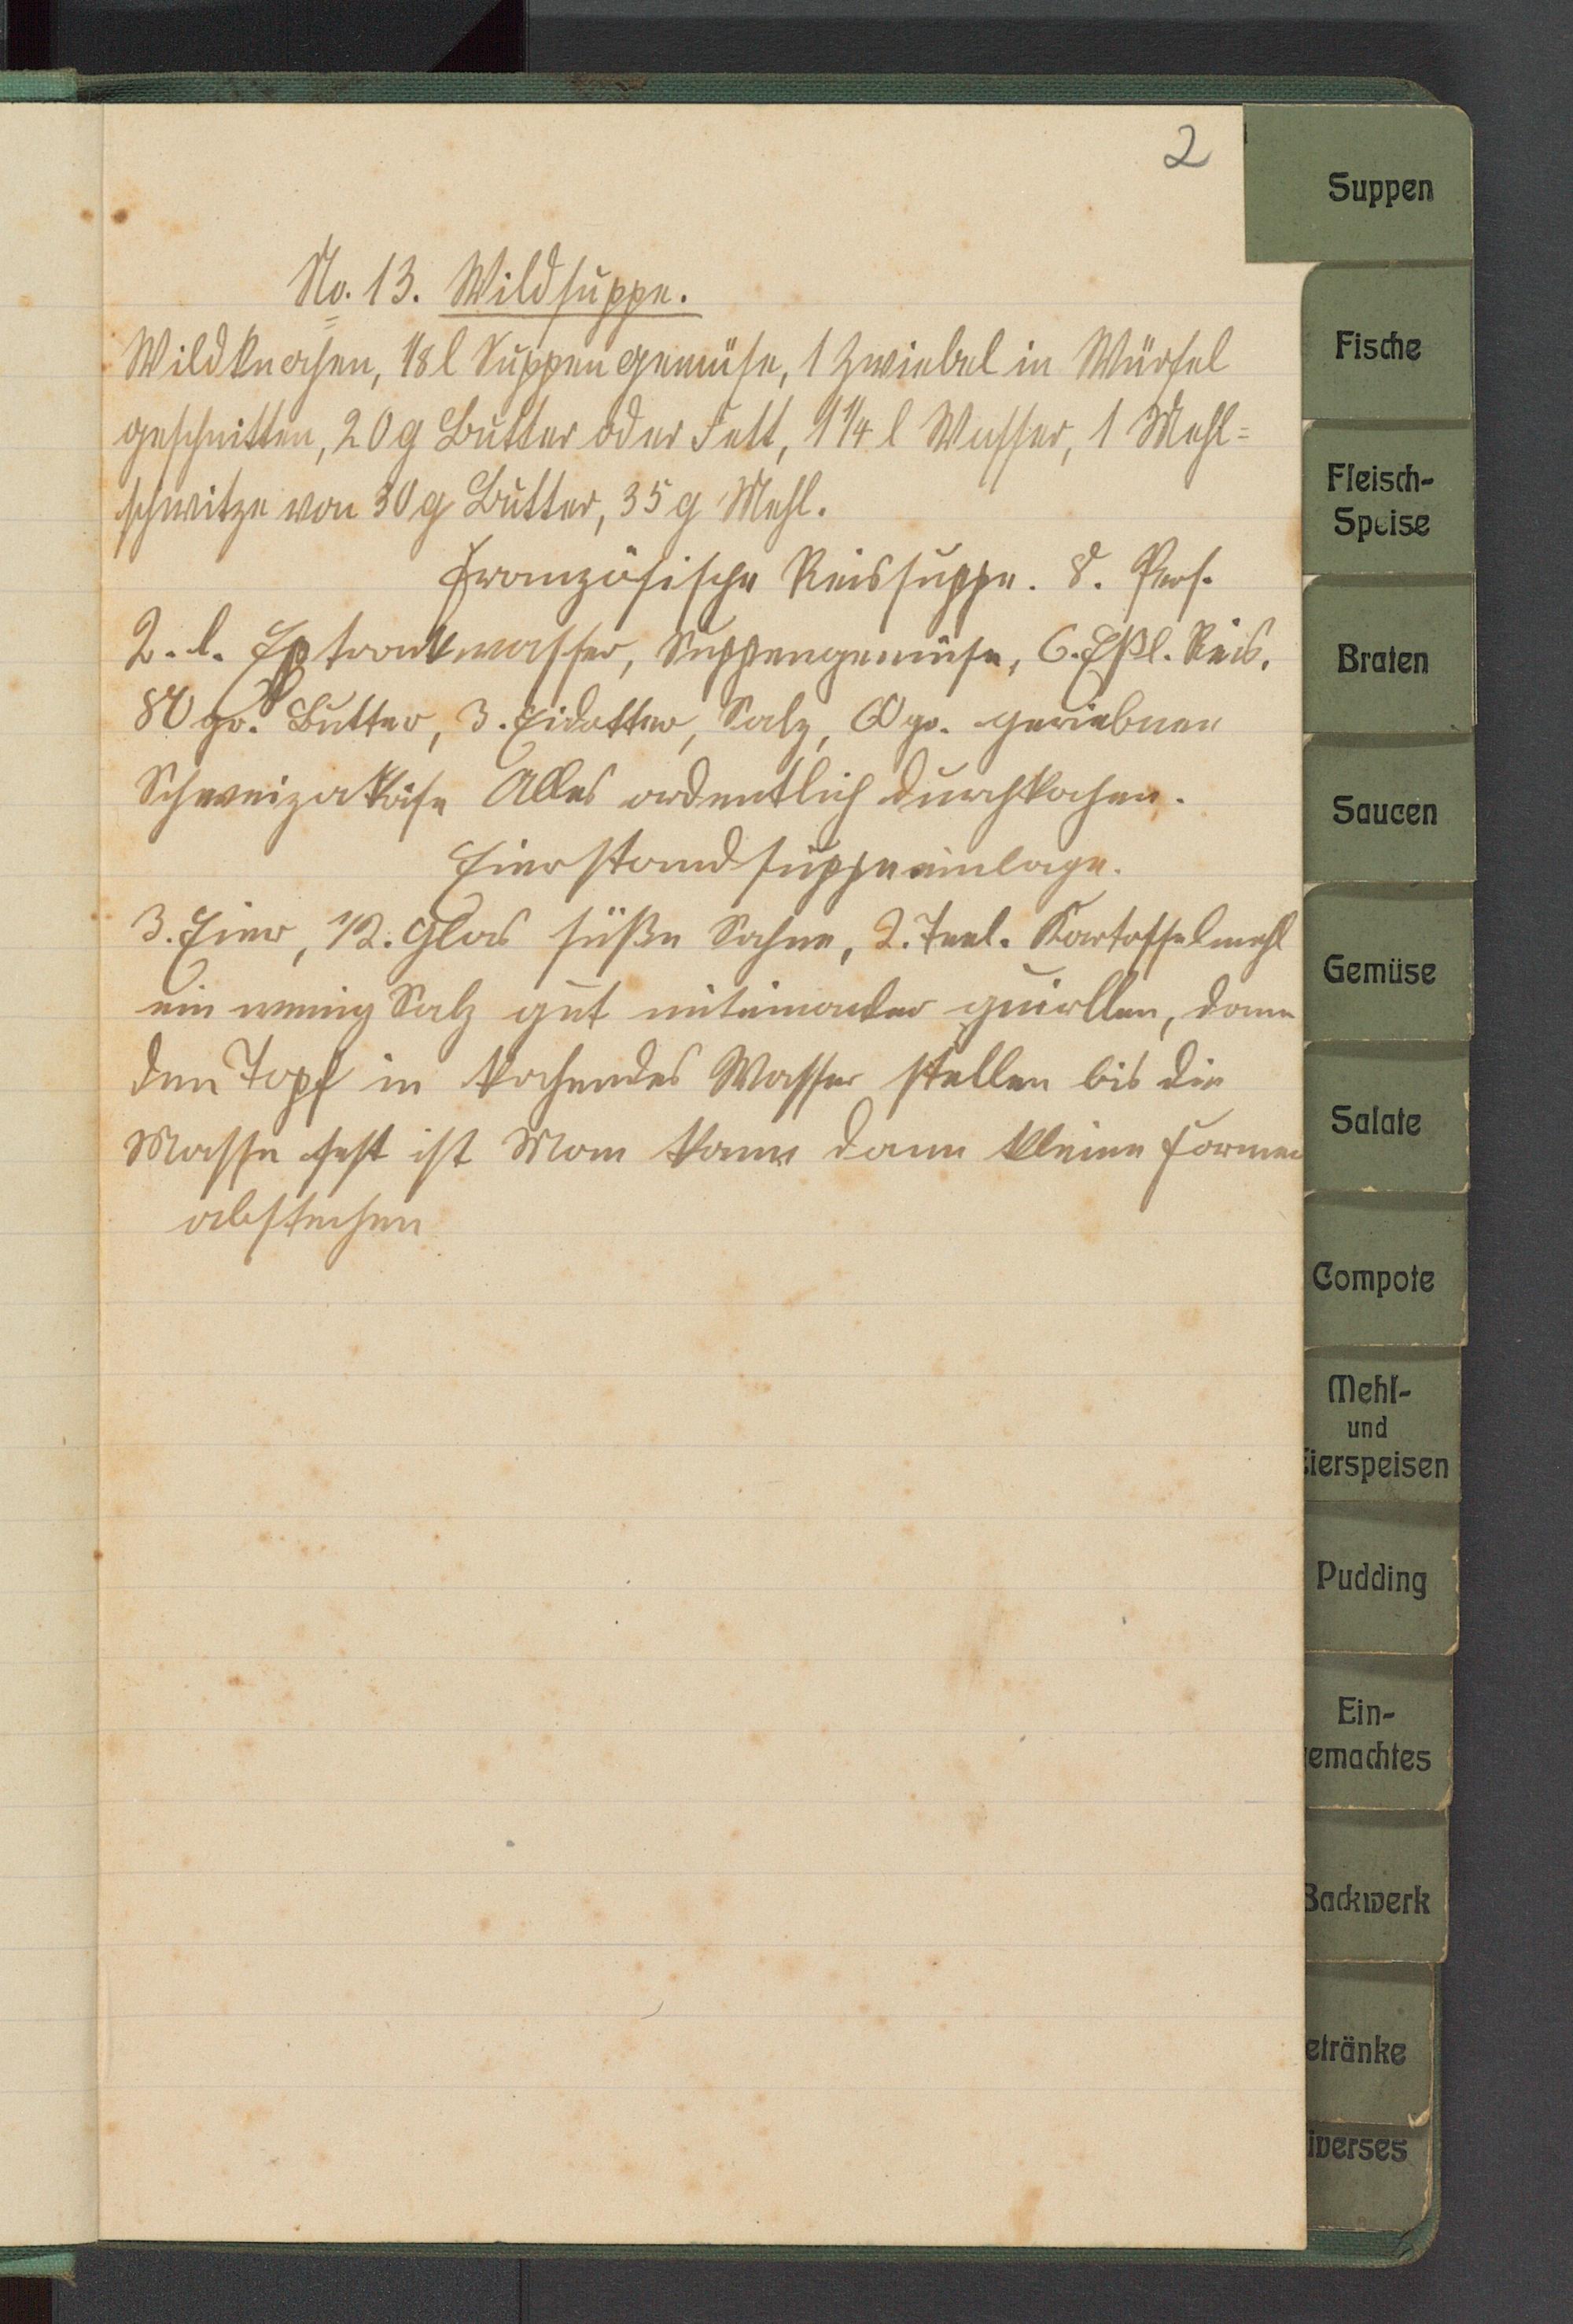 2
No. 13. Wildsuppe.
Wildknochen, 1/8 l Suppengemüse, 1 Zwiebel in Würfel
geschnitten, 20 g Butter oder Fett, 1 1/4 l Wasser, 1 Mehl=
schwitze von 30 g Butter, 35 g Mehl.
Französische Reissuppe. 8. Pers.
2. l. wasser, Suppengemüse, 6. Eßl. Reis.
80 gr. Butter, 3. Eidotter, Salz, gr. geriebnen
Schweizerkäse Alles ordentlich durchkochen.
Eierstandsuppeneinlage.
3. Eier, 1/2. Glas süße Sahne, 2. Teel. Kartoffelmehl
ein wenig Salz gut miteinander quirllen, dann
den Topf in kochendes Wasser stellen bis die
Masse fest ist Man kann dann kleine Formen
abstechen
Suppen
Fische
Fleisch-
Speise
Braten
Saucen
Gemüse
Salate
Compote
Mehl-
und
Eierspeisen
Pudding
Ein-
gemachtes
Backwerk
etränke
iverses